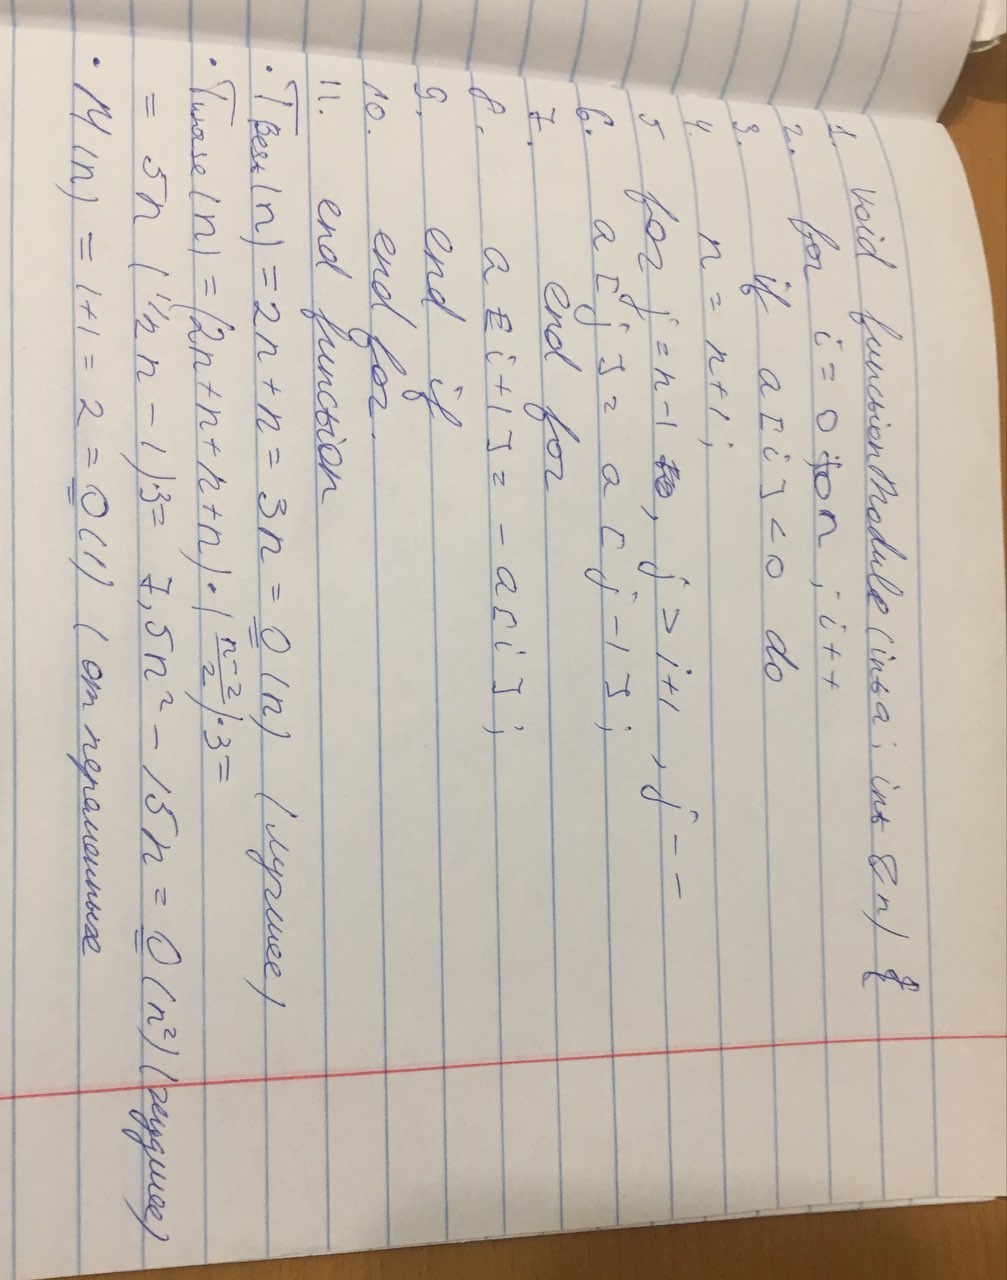 1. void functionModule(int a; int &n) {
2. for i=0 to n; i++
3. if a[i]<0 do
4. n = n+1;
5 for j=n-1, j>i+1, j--
6. a[j]= a[j-1];
7. end for
8. a[i+1]= -a[i];
9. end if
10. end for.
11. end function
· TBest(n)=2n+n=3n=O(n) (лучшее)
· (n)=(2n+n+n+n)·(n-2/2)·3=
= 5n (1/2 n - 1)3= 7,5n² - 15n = O(n²) (худшее)
· M(n) = 1+1=2=O(1) (от переменных